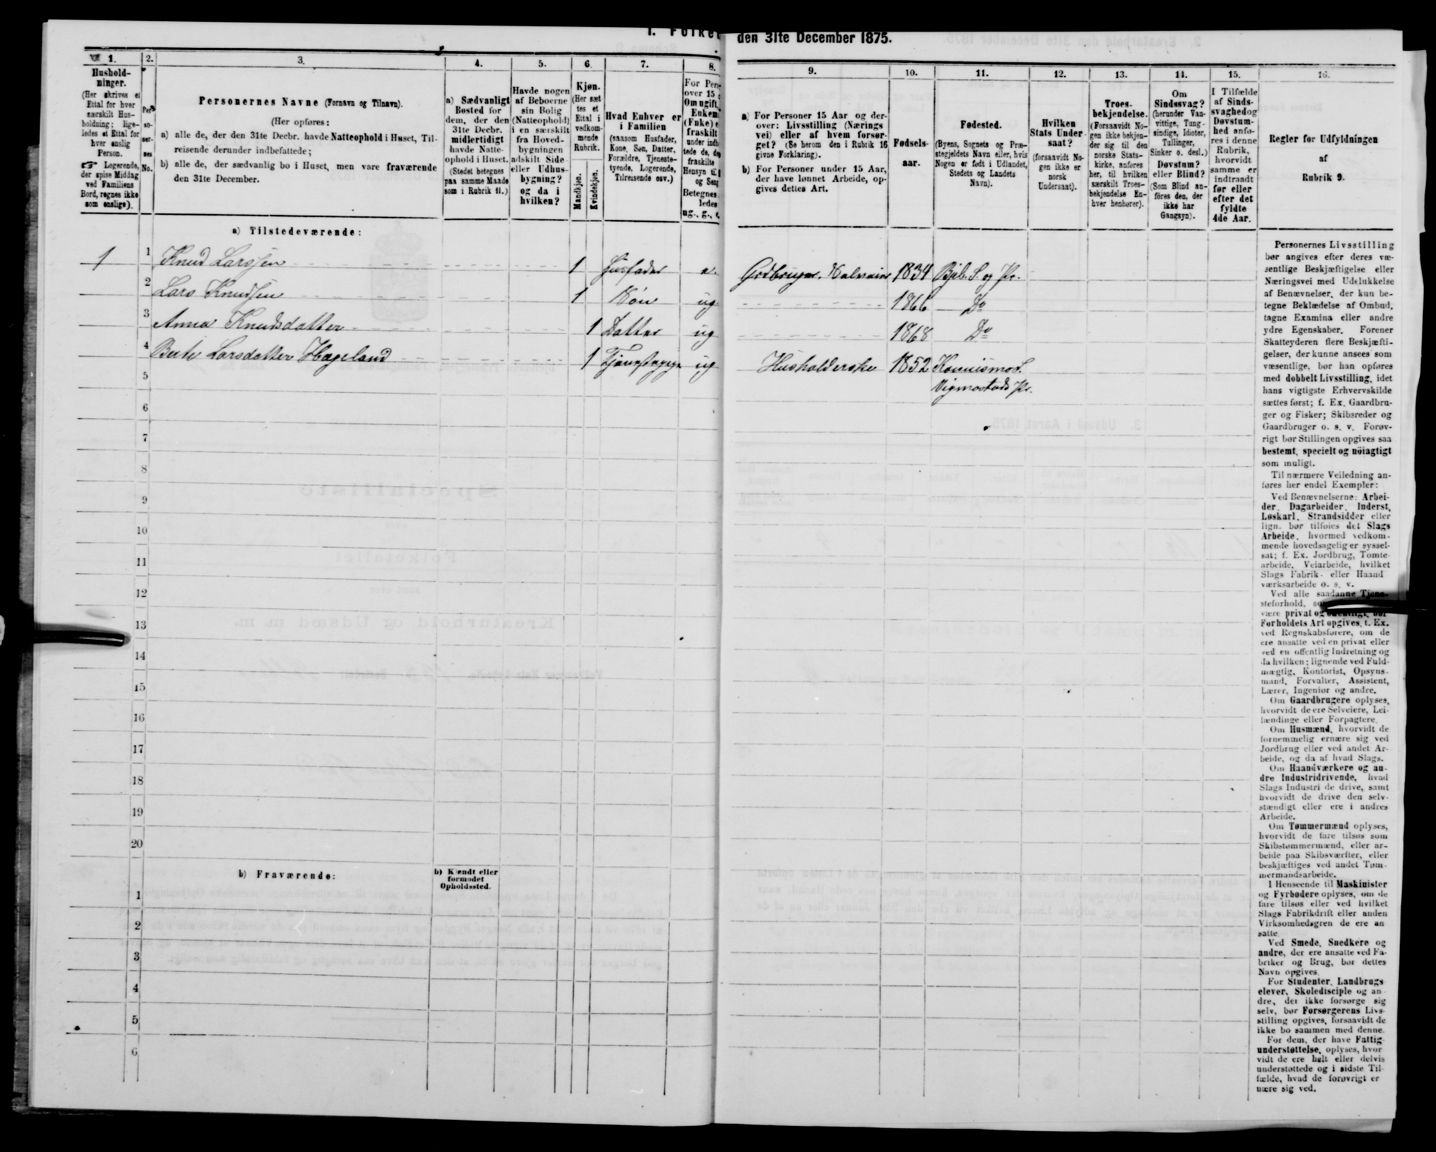 den 31te December 1875.
1.
Hushold-
ninger.
(Her skrives et
Ettal for hver
særskilt Hus-
holdning; lige-
ledes et Ettal for
hver enslig
Person.
Logerende,
der spise Middag
ved Familiens
Bord, regnes ikke
som enslige).
2.
3.
Personernes Navne (Fornavn og Tilnavn).
(Her opføres:
a) alle de, der den 31te Decbr. havde Natteophold i Huset, Til-
reisende derunder indbefattede;
b) alle de, der sædvanlig bo i Huset, men vare fraværende
den 31te December.
4.
a) Sædvanligt
Bosted for
dem, der den
31te Decbr.
midlertidigt
havde Natte-
ophold i Huset.
(Stedet betegnes
paa samme Maade
som i Rubrik 11.)
5.
Havde nogen
af Beboerne
sin Bolig
(Natteophold)
i en særskilt
fra Hoved-
bygningen
adskilt Side
eller Udhus-
bygning?
og da i
hvilken?
6.
Kjøn.
(Her sæt
tes et
Ettal i
vedkom-
mende
Rubrik.
Mandkjøn.
Kvindekjøn.
7.
Hvad Enhver er
i Familien
(saasom Husfader,
Kone, Søn, Datter,
Forældre, Tjeneste-
tyende, Logerende,
Tilreisende osv.).
8.
9.
a) For Personer 15 Aar og der-
over: Livsstilling (Nærings
vei) eller af hvem forsør-
get? (Se herom den i Rubrik 16
givne Forklaring).
b) For Personer under 15 Aar,
der have lønnet Arbeide, op-
gives dettes Art.
10.
Fødsels-
aar.
11.
Fødested.
(Byens, Sognets og Præ-
stegjeldets Navn eller, hvis
Nogen er født i Udlandet,
Stedets og Landets
Navn).
12.
Hvilken
Stats Under-
saat?
(forsaavidt No-
gen ikke er
norsk
Undersaat).
13.
Troes-
bekjendelse.
(Forsaavidt No-
gen ikke bekjen-
der sig til den
norske Stats-
kirke, anføres
her, til hvilken
særskilt Troes-
bekjendelse En-
hver henhører).
14.
Om
Sindssvag?
(herunder Van-
vittige, Tung-
sindige, Idioter,
Tullinger,
Sinker o. desl.)
Døvstum?
eller Blind?
(Som Blind an-
føres den, der
ikke har
Gangsyn).
15.
I Tilfælde
af Sinds-
svaghed og
Døvstum-
hed anfø-
res i denne
Rubrik,
hvorvidt
samme er
indtraadt
før eller
efter det
fyldte
4de Aar.
16.
Regler for Udfyldningen
af
Rubrik 9.
a) Tilstedeværende:
1 1 Knud Larssen 1 Husfader e. Gdbruger. Selveier 1834 Bjel. S. og Pr.
2 Lars Knudsen 1 Søn ug 1866 Do
3 Anna Knudsdatter 1 Datter ug 1868 Do
4 Berte Larsdatter Hageland 1 ug Husholderske 1852
Vigmostads Pr.
5
6
7
8
9
10
11
12
13
14
15
16
17
18
19
20
b) Fraværende:
b) Kjendt eller
formodet
Opholdssted.
1
2
3
4
5
6
Personernes Livsstilling
bør angives efter deres væ-
sentlige Beskjæftigelse eller
Næringsvei med Udelukkelse
af Benævnelser, der kun be-
tegne Beklædelse af Ombud,
tagne Examina eller andre
ydre Egenskaber. Forener
Skatteyderen flere Beskjæfti-
gelser, der kunne ansees som
væsentlige, bør han opføres
med dobbelt Livsstilling, idet
hans vigtigste Erhvervskilde
sættes først; f. Ex. Gaardbru-
ger og Fisker; Skibsreder og
Gaardbruger o. s. v. Forøv-
rigt bør Stillingen opgives saa
bestemt, specielt og nöiagtigt
som muligt.
Til nærmere Veiledning an-
føres her endel Exempler:
Ved Benævnelserne: Arbei-
der, Dagarbeider, Inderst,
Løskarl, Strandsidder eller
lign. bør tilføies det Slags
Arbeide, hvormed vedkom-
mende hovedsagelig er syssel-
sat; f. Ex. Jordbrug, Tomte-
arbeide, Veiarbeide, hvilket
Slags Fabrik- eller Haand
værksarbeide o. s. v.
Ved alle saadanne Tjene-
steforhold,
være privat og
Forholdets Art opgives, f. Ex.
ved Regnskabsførere, om de
ere ansatte ved en privat eller
ved en offentlig Indretning og
da hvilken; lignende ved Fuld-
mægtig, Kontorist, Opsyns-
mand, Forvalter, Assistent,
Lærer, Ingeniør og andre.
Om Gaardbrugere oplyses,
hvorvidt de ere Selveiere, Lei-
lændinge eller Forpagtere.
Om Husmænd, hvorvidt de
fornemmelig ernære sig ved
Jordbrug eller ved andet Ar-
beide, og da af hvad Slags.
Om Haandværkere og an-
dre Industridrivende, hvad
Slags Industri de drive, samt
hvorvidt de drive den selv-
stændigt eller ere i andres
Arbeide.
Om Tømmermænd oplyses,
hvorvidt de fare tilsøs som
Skibstømmermænd, eller ar-
beide paa Skibsværfter, eller
beskjæftiges ved andet Tøm-
mermandsarbeide.
I Henseende til Maskinister
og Fyrbødere oplyses, om de
fare tilsøs eller ved hvilket
Slags Fabrikdrift eller anden
Virksomhedsgren de ere an
satte.
Ved Smede, Snedkere og
andre, der ere ansatte ved Fa-
briker og Brug, bør dettes
Navn opgives.
For Studenter, Landbrugs
elever, Skoledisciple og an-
dre, der ikke forsørge sig
selv, bør Forsørgerens Livs-
stilling opgives, forsaavidt de
ikke bo sammen med denne.
For dem, der have Fattig-
understøttelse, oplyses, hvor
vidt de ere helt eller delvis
understøttede og i sidste Til-
fælde, hvad de forøvrigt er
nære sig ved.